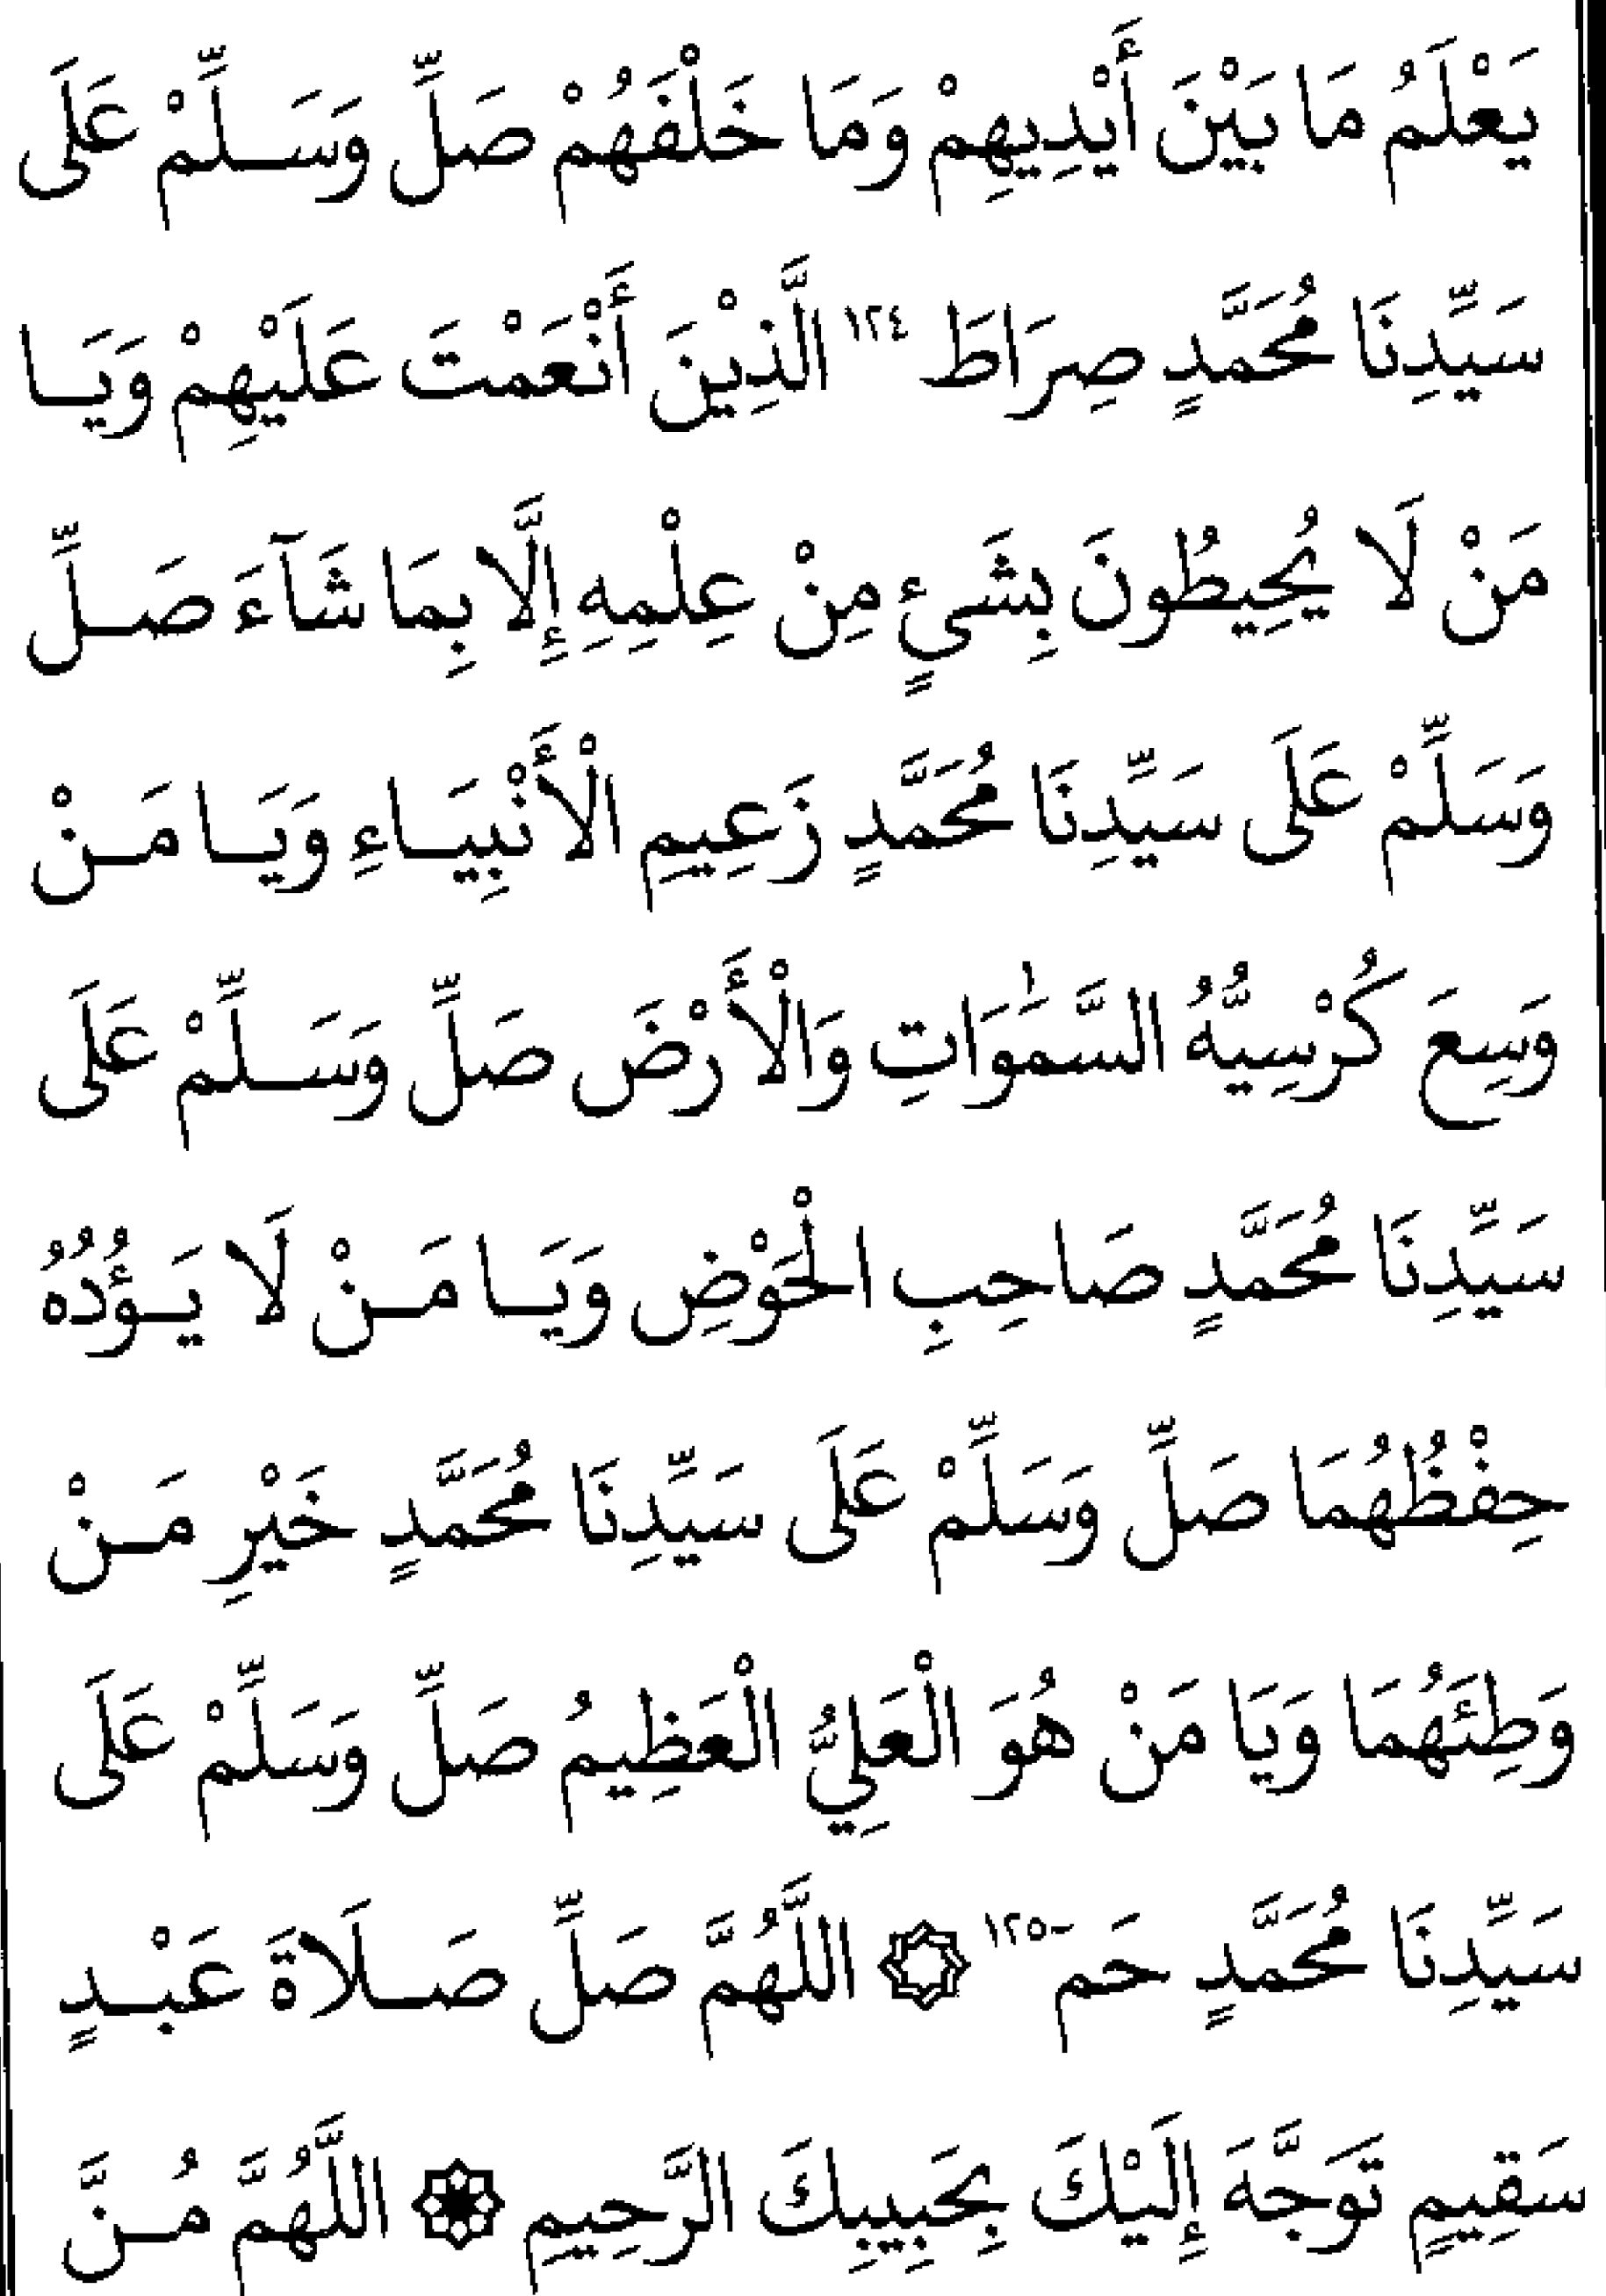 يَعْلَمُ مَا بَيْنَ أَيْدِيهِمْ وَمَا خَلْفَهُمْ صَلِّ وَسَلِّمْ عَلَى
سَيِّدِنَا مُحَمَّدٍ صِرَاطَ ١٢٤ الَّذِينَ أَنْعَمْتَ عَلَيْهِمْ وَيَا
مَنْ لَا يُحِيطُونَ بِشَيءٍ مِنْ عِلْمِهِ إِلَّا بِمَا شَآءَ صَلِّ
وَسَلِّمْ عَلَى سَيِّدِنَا مُحَمَّدٍ زَعِيمِ الْأَنْبِيَاءِ وَيَا مَنْ
وَسِعَ كُرْسِيُّهُ السَّمٰوَاتِ وَالْأَرْضَ صَلِّ وَسَلِّمْ عَلَى
سَيِّدِنَا مُحَمَّدٍ صَاحِبِ الْحَوْضِ وَيَا مَنْ لَا يَؤُدُهُ
حِفْظُهُمَا صَلِّ وَسَلِّمْ عَلَى سَيِّدِنَا مُحَمَّدٍ خَيْرِ مَنْ
وَطِئَهُمَا وَيَا مَنْ هُوَ الْعَلِيُّ الْعَظِيمُ صَلِّ وَسَلِّمْ عَلَى
سَيِّدِنَا مُحَمَّدٍ حَم -١٢٥ ۞ اللَّهُمَّ صَلِّ صَلَاةَ عَبْدٍ
سَقِيمٍ تَوَجَّهَ إِلَيْكَ بِحَبِيبِكَ الرَّحِيمِ ۞ اللَّهُمَّ مُنَّ